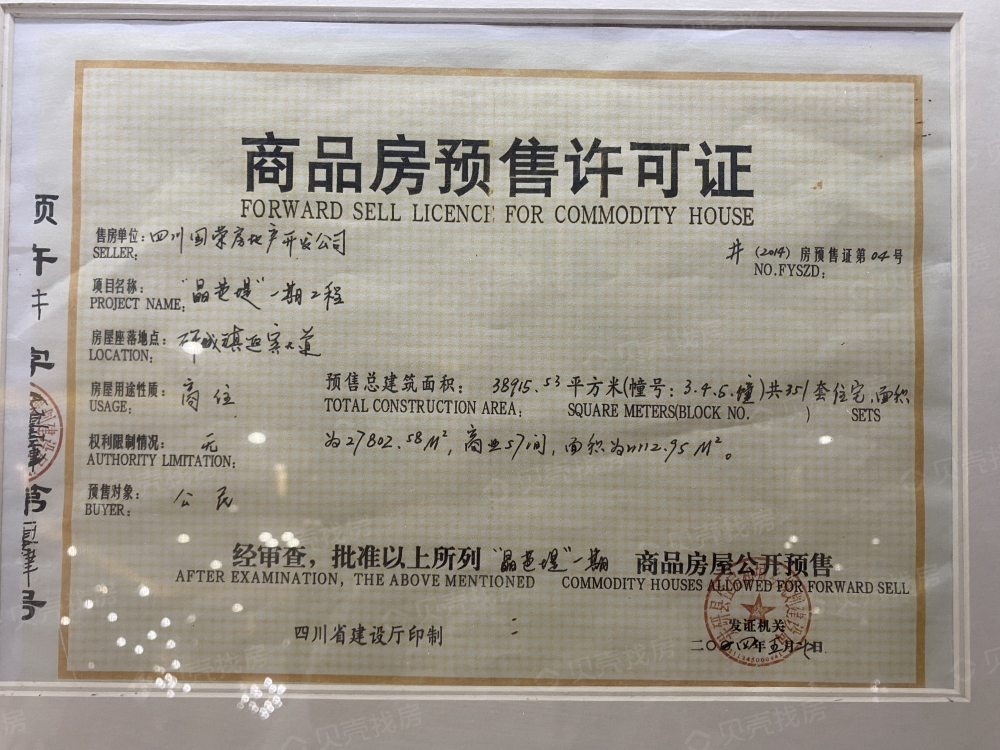 商品房预售许可证
FORWARD SELL LICENCE FOR COMMODITY HOUSE
售房单位：四川国荣房地产开发公司
SELLER：
井（2014）房预售证第04号
NO.FYSZD：
项目名称：“晶芭堤”一期工程
PROJECT NAME：
房屋座落地点：研城镇迎宾大道
LOCATION：
房屋用途性质：商住
USAGE：
预售总建筑面积：38915.53平方米(幢号：3.4.5.幢)共351套住宅，面积
TOTAL CONSTRUCTION AREA： SQUARE METERS(BLOCK NO. ) SETS
权利限制情况：无
AUTHORITY LIMITATION：
为27802.58M²，商业57间，面积为11112.95M²。
预售对象：公民
BUYER：
经审查，批准以上所列“晶芭堤”一期 商品房屋公开预售
AFTER EXAMINATION, THE ABOVE MENTIONED COMMODITY HOUSES ALLOWED FOR FORWARD SELL
四川省建设厅印制
发证机关
贝壳找房